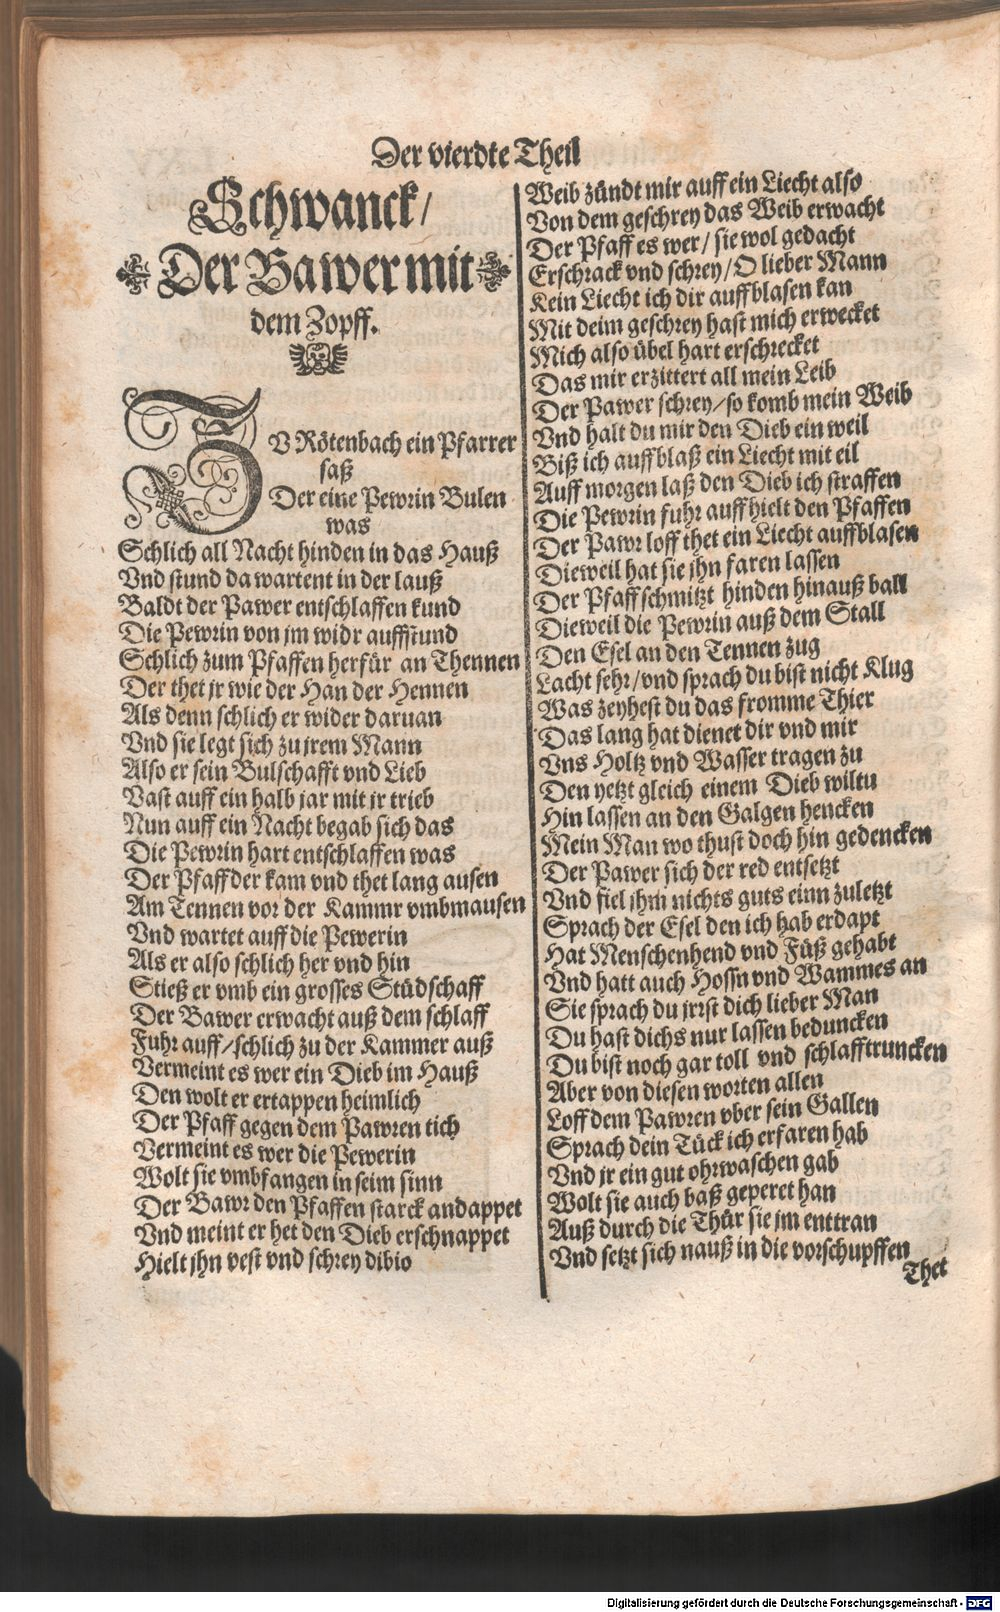 Der vierdte Theil
Schwanck/
Der Bawer mit
dem Zopff.
ZV Rötenbach ein Pfarrer
saß
Der eine Pewrin Bulen
was
Schlich all Nacht hinden in das Hauß
Vnd stund da wartent in der lauß
Baldt der Pawer entschlaffen kund
Die Pewrin von jm widr auffstund
Schlich zum Pfaffen herfür an Thennen
Der thet jr wie der Han der Hennen
Als denn schlich er wider daruan
Vnd sie legt sich zu jrem Mann
Also er sein Bulschafft vnd Lieb
Vast auff ein halb jar mit jr trieb
Nun auff ein Nacht begab sich das
Die Pewrin hart entschlaffen was
Der Pfaff der kam vnd thet lang ausen
Am Tennen vor der Kammr vmbmausen
Vnd wartet auff die Pewerin
Als er also schlich her vnd hin
Stieß er vmb ein grosses Stüdschaff
Der Bawer erwacht auß dem schlaff
Fuhr auff/schlich zu der Kammer auß
Vermeint es wer ein Dieb im Hauß
Den wolt er ertappen heimlich
Der Pfaff gegen dem Pawren tich
Vermeint es wer die Pewerin
Wolt sie vmbfangen in seim sinn
Der Bawr den Pfaffen starck andappet
Vnd meint er het den Dieb erschnappet
Hielt jhn vest vnd schrey dibio
Weib zündt mir auff ein Liecht also
Von dem geschrey das Weib erwacht
Der Pfaff es wer/ sie wol gedacht
Erschrack vnd schrey/O lieber Mann
Kein Liecht ich dir auffblasen kan
Mit deim geschrey hast mich erwecket
Mich also übel hart erschrecket
Das mir erzittert all mein Leib
Der Pawer schrey/so komb mein Weib
Vnd halt du mir den Dieb ein weil
Biß ich auffblaß ein Liecht mit eil
Auff morgen laß den Dieb ich straffen
Die Pewrin fuhr auff hielt den Pfaffen
Der Pawr loff thet ein Liecht auffblasen
Dieweil hat sie jhn faren lassen
Der Pfaff schmitzt hinden hinauß ball
Dieweil die Pewrin auß dem Stall
Den Esel an den Tennen zug
Lacht sehr/vnd sprach du bist nicht Klug
Was zeyhest du das fromme Thier
Das lang hat dienet dir vnd mir
Vns Holtz vnd Wasser tragen zu
Den yetzt gleich einem Dieb wiltu
Hin lassen an den Galgen hencken
Mein Man wo thust doch hin gedencken
Der Pawer sich der red entsetzt
Vnd fiel jhm nichts guts einn zuletzt
Sprach der Esel den ich hab erdapt
Hat Menschenhend vnd Füß gehabt
Vnd hatt auch Hossn vnd Wammes an
Sie sprach du jrrst dich lieber Man
Du hast dichs nur lassen beduncken
Du bist noch gar toll vnd schlafftruncken
Aber von diesen worten allen
Loff dem Pawren vber sein Gallen
Sprach dein Tück ich erfaren hab
Vnd jr ein gut ohrwaschen gab
Wolt sie auch baß geperet han
Auß durch die Thür sie jm enttran
Vnd setzt sich nauß in die vorschupffen
Thet
Digitalisierung gefördert durch die Deutsche Forschungsgemeinschaft - DFG